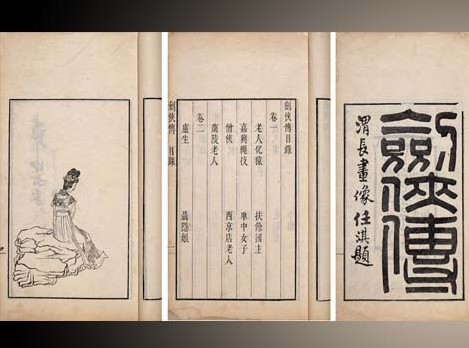 劍俠傳
渭長畫像任淇題
劍俠傳目錄
卷一
老人化猿 扶餘國主
嘉興繩技 車中女子
僧俠 西京店老人
蘭陵老人
卷二
盧生 聶隱娘
劍俠傳 目錄